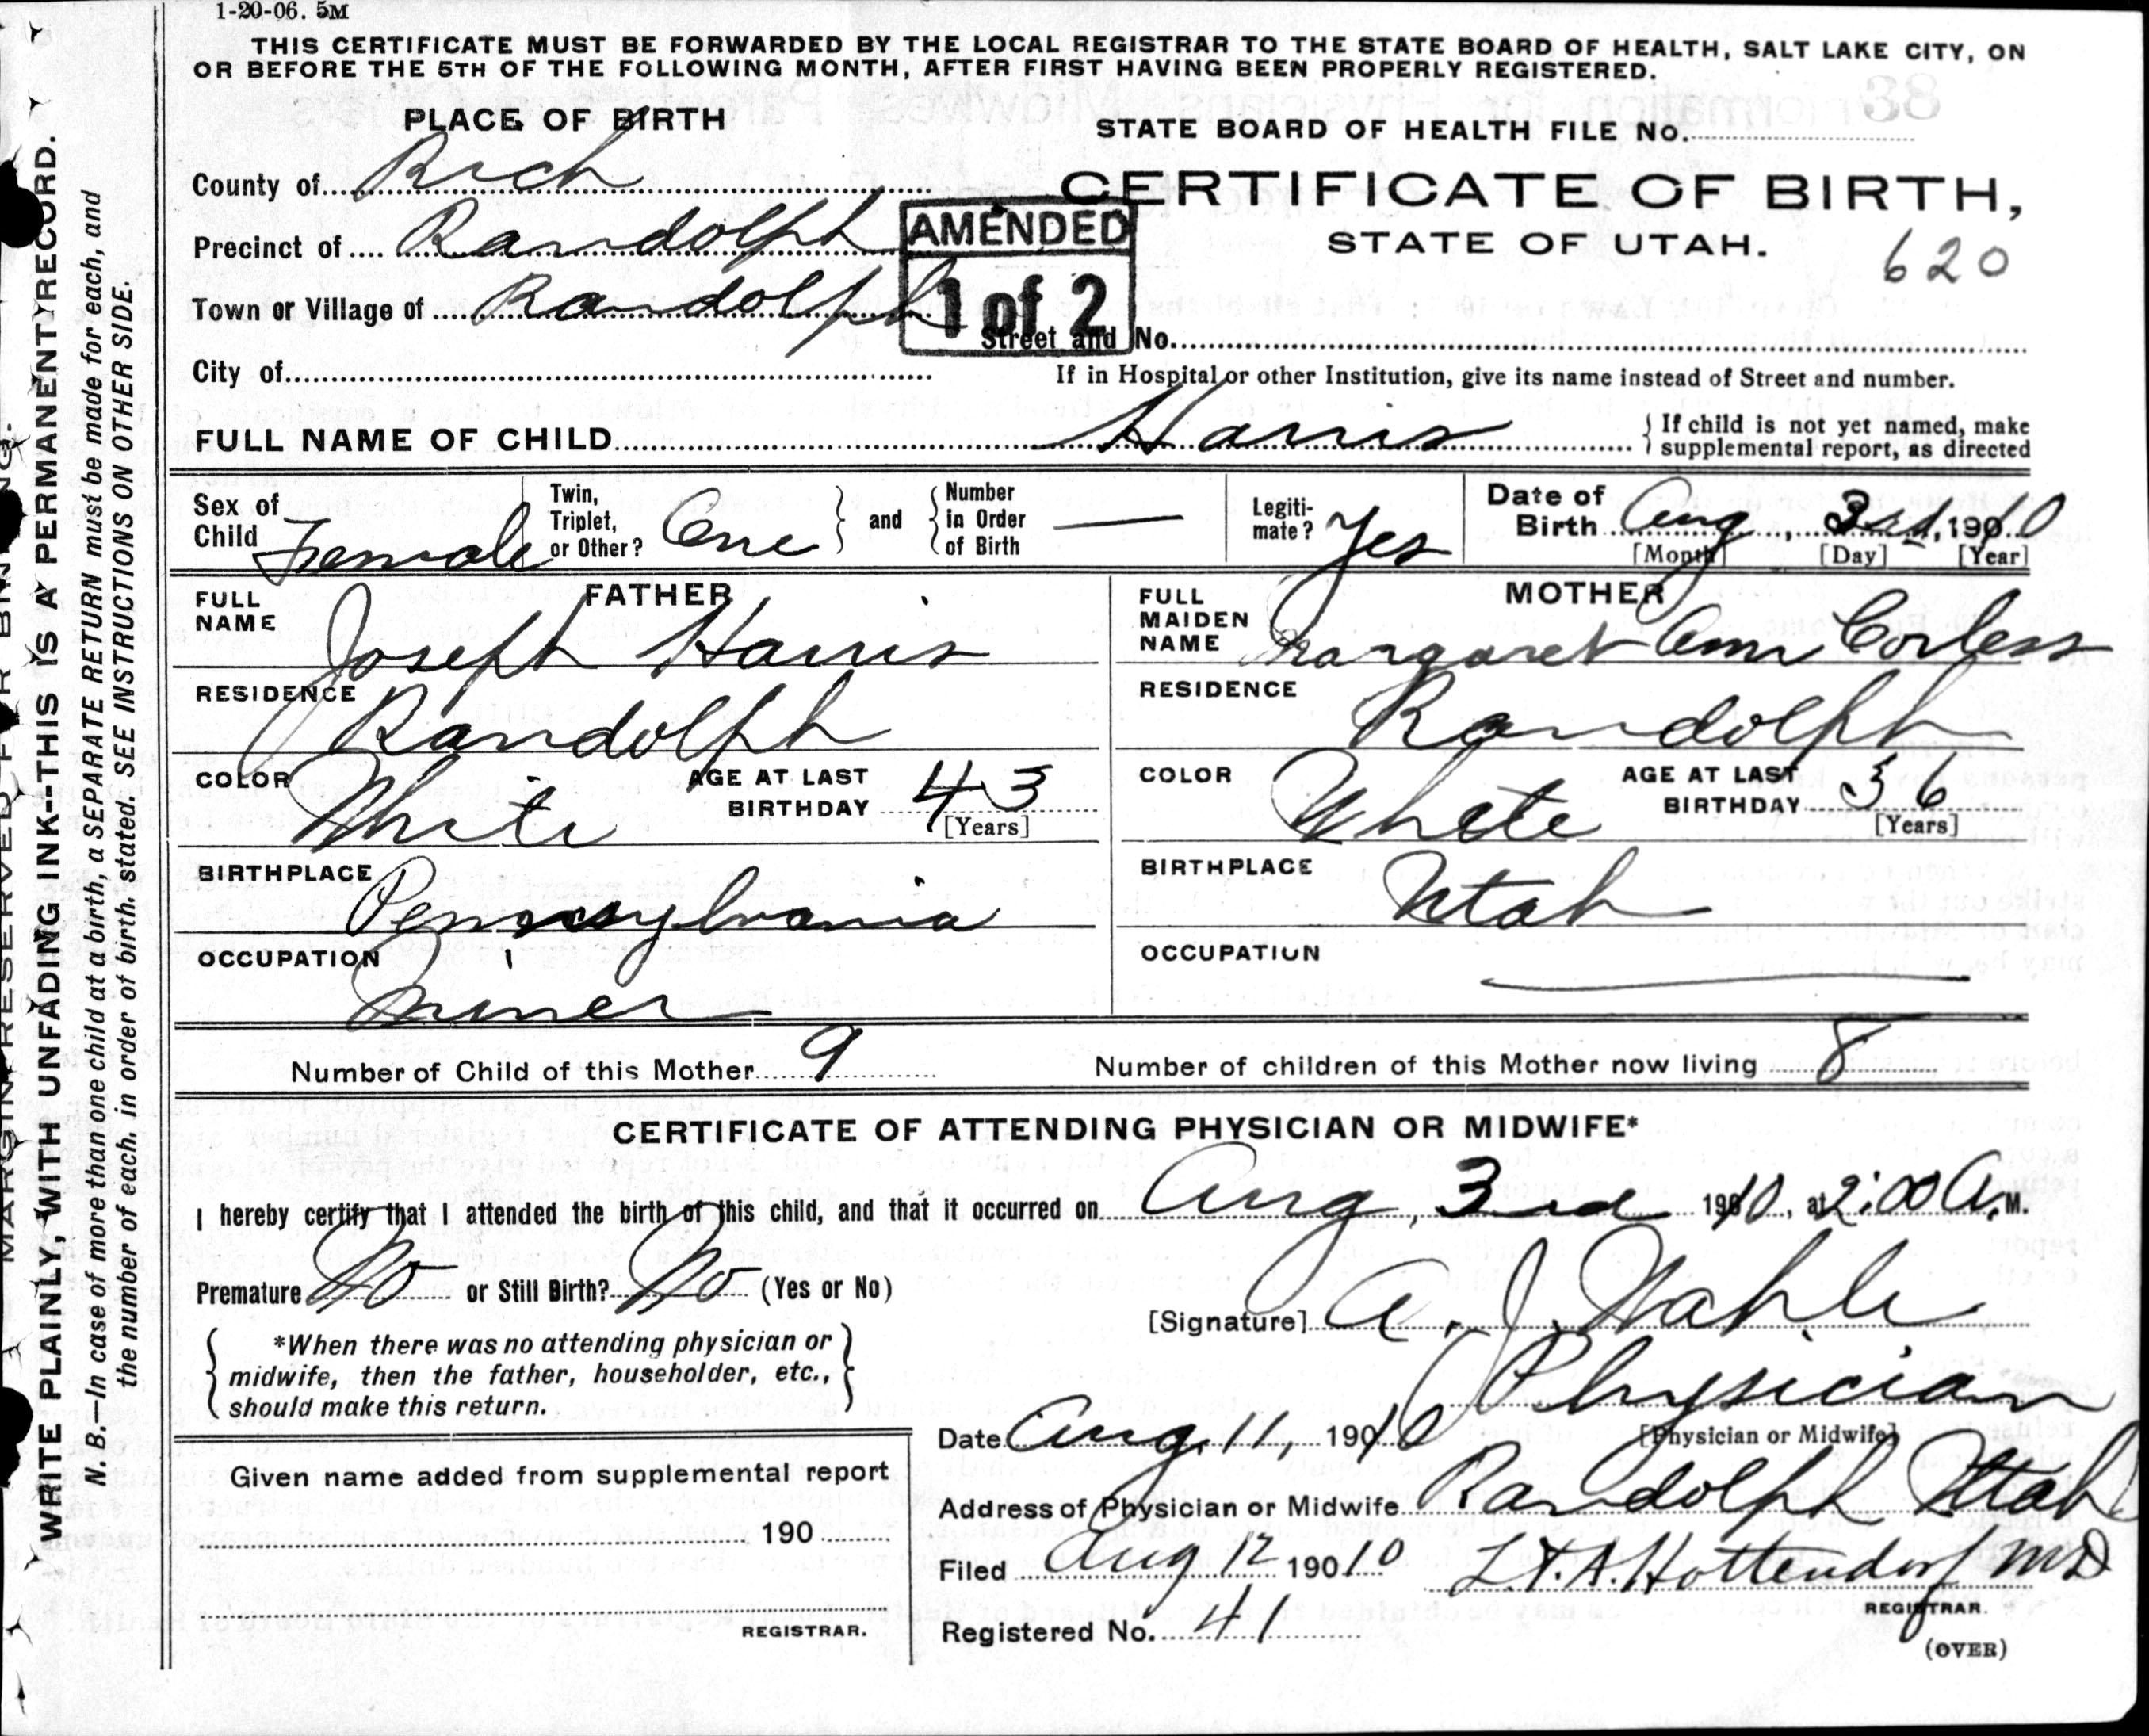 1-20-06. 5M
THIS CERTIFICATE MUST BE FORWARDED BY THE LOCAL REGISTRAR TO THE STATE BOARD OF HEALTH, SALT LAKE CITY, ON
OR BEFORE THE 5TH OF THE FOLLOWING MONTH, AFTER FIRST HAVING BEEN PROPERLY REGISTERED.
PLACE OF BIRTH
STATE BOARD OF HEALTH FILE No.
County of Rich
CERTIFICATE OF BIRTH,
Precinct of Randolph
AMENDED
STATE OF UTAH.
620
Town or Village of Randolph
1 of 2
Street and No.
City of
If in Hospital or other Institution, give its name instead of Street and number.
FULL NAME OF CHILD Harris
{ If child is not yet named, make
supplemental report, as directed
Sex of Child Female
Twin, Triplet, or Other? One } and { Number in Order of Birth —
Legiti-mate? Yes
Date of Birth Aug, 3rd, 1910
[Month] [Day] [Year]
FATHER
FULL NAME Joseph Harris
RESIDENCE Randolph
COLOR White
AGE AT LAST BIRTHDAY 43
[Years]
BIRTHPLACE Pennsylvania
OCCUPATION Miner
MOTHER
FULL MAIDEN NAME Margaret Ann Corless
RESIDENCE Randolph
COLOR White
AGE AT LAST BIRTHDAY 36
[Years]
BIRTHPLACE Utah
OCCUPATION
Number of Child of this Mother 9
Number of children of this Mother now living 8
CERTIFICATE OF ATTENDING PHYSICIAN OR MIDWIFE*
I hereby certify that I attended the birth of this child, and that it occurred on Aug, 3rd 1910, at 2:00 A.M.
Premature No or Still Birth? No (Yes or No)
[Signature] A. J.
Physician
[Physician or Midwife]
{ *When there was no attending physician or
midwife, then the father, householder, etc.,
should make this return. }
Date Aug, 11, 1910
Given name added from supplemental report
190
REGISTRAR.
Address of Physician or Midwife Randolph Utah
Filed Aug 12 1910 L.T.A. Hottendorf MD
REGISTRAR.
Registered No. 41
(OVER)
MARGIN RESERVED FOR BINDING.
WRITE PLAINLY, WITH UNFADING INK--THIS IS A PERMANENT RECORD.
N. B.—In case of more than one child at a birth, a SEPARATE RETURN must be made for each, and
the number of each, in order of birth, stated. SEE INSTRUCTIONS ON OTHER SIDE.